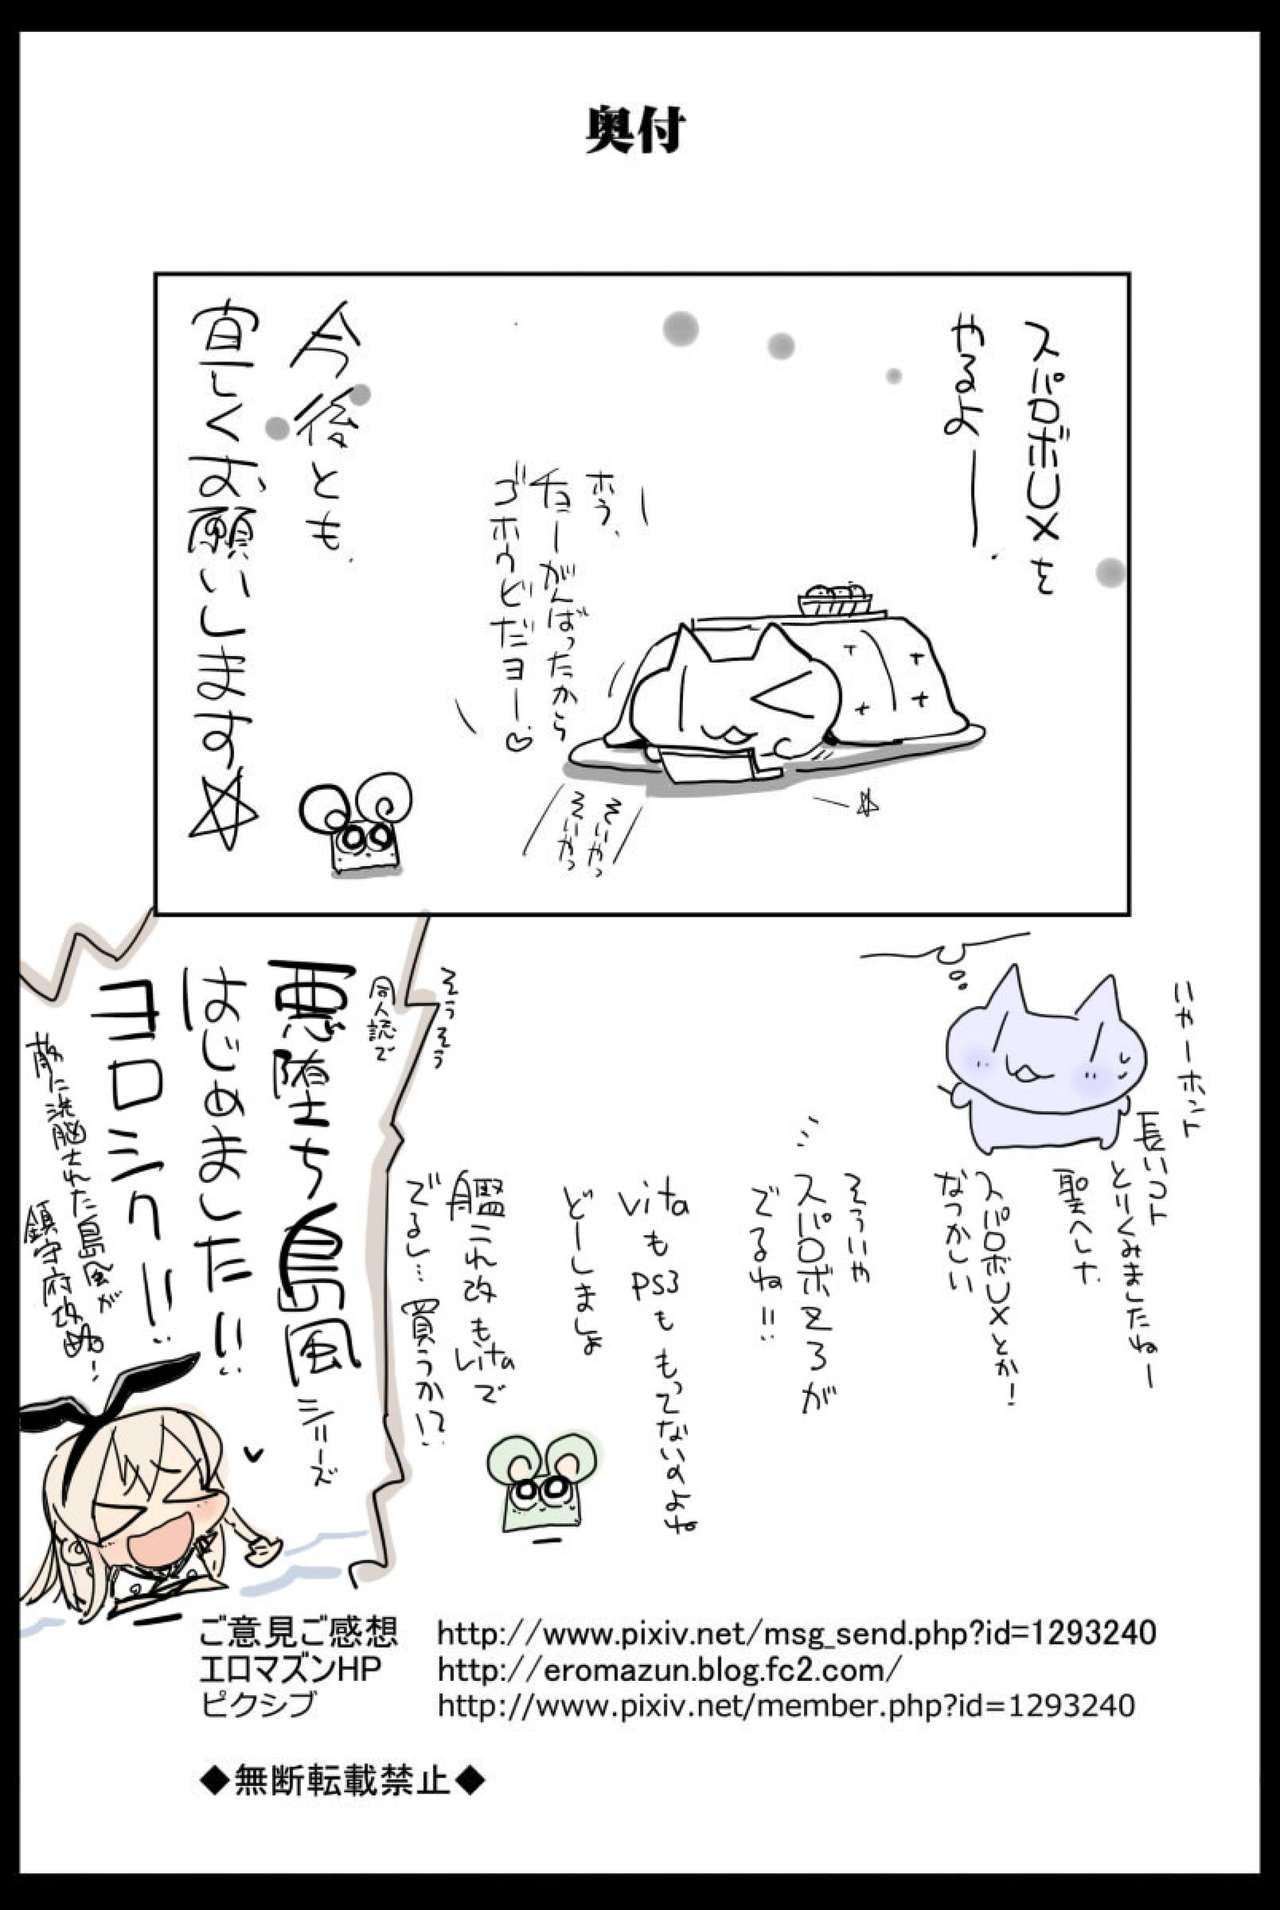 奥付
スパロボUXを
やるよー
ホラ、
チョーがんばったから
ゴホウビだヨー♡
そいやっ
そいやっ
今後とも
宜しくお願いします☆
いやーホント
長いコト
とりくみましたねー
聖ヘレナ
スパロボUXとか!
なつかしい
そういや
スパロボZ3が
でるね!!
vitaもPS3ももってないのよね
どーしましょ
艦これ改もvitaで
でるし…買うか!?
そうそう
同人誌で
悪堕ち島風シリーズ
はじめました!!
ヨロシク!!
に洗脳された島風が
鎮守府攻め!
ご意見ご感想 http://www.pixiv.net/msg_send.php?id=1293240
エロマズンHP http://eromazun.blog.fc2.com/
ピクシブ http://www.pixiv.net/member.php?id=1293240
◆無断転載禁止◆